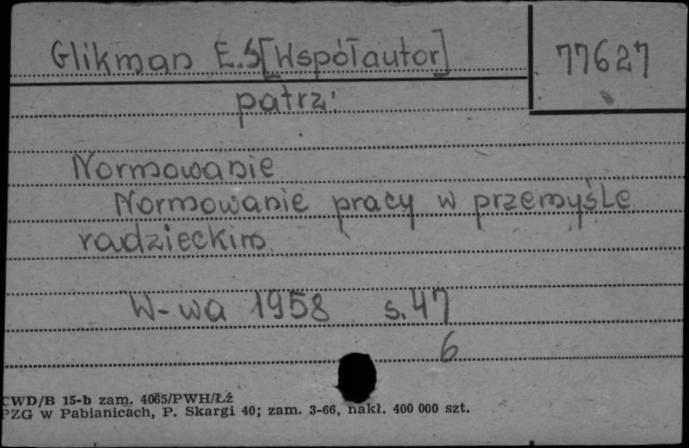 Glikman E.S[Współautor]
77627
patrz:
Normowanie
Normowanie pracy w przemyśle
radzieckim
W-wa 1958 s.47
6
CWD/B 15-b zam. 4065/PWH/Łź
PZG w Pabianicach, P. Skargi 40; zam. 3-66, nakł. 400 000 szt.